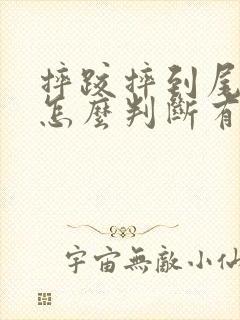 摔跤摔到尾
怎麼判斷有
宇宙無敵小仙